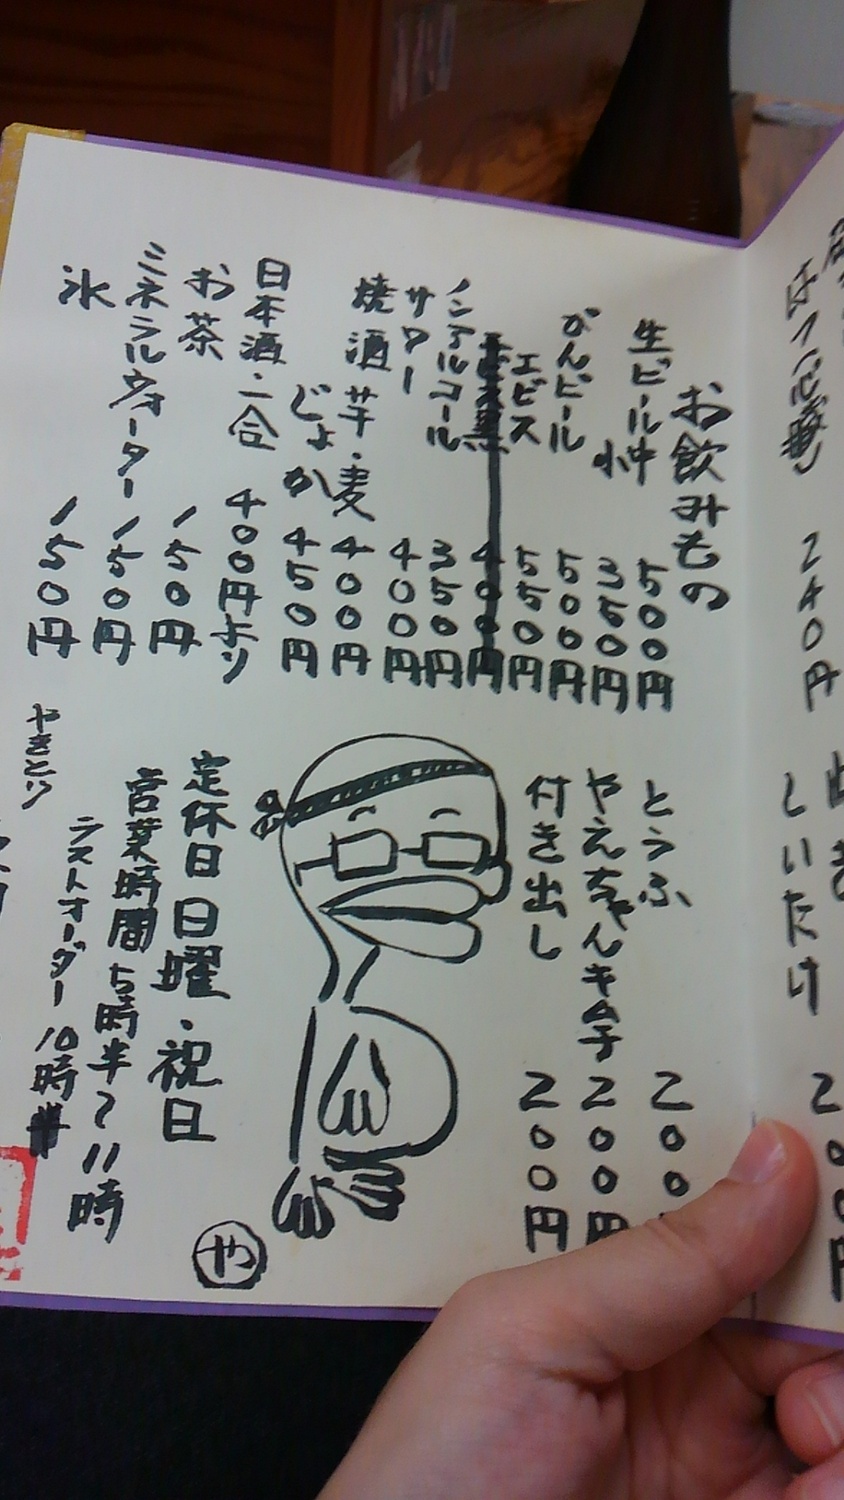 240円
しいたけ
お飲みもの
生ビール中 500円
小 350円
かんビール 500円
エビス 550円
エビス黒 400円
ノンアルコール 350円
サワー 400円
焼酒 芋・麦 400円
じょか 450円
日本酒・二合 400円より
お茶 150円
ミネラルウォーター 150円
氷 150円
とうふ 200
やえちゃんキムチ 200円
付き出し 200円
定休日 日曜・祝日
営業時間 5時半〜11時
ラストオーダー 10時半
やきとり
や